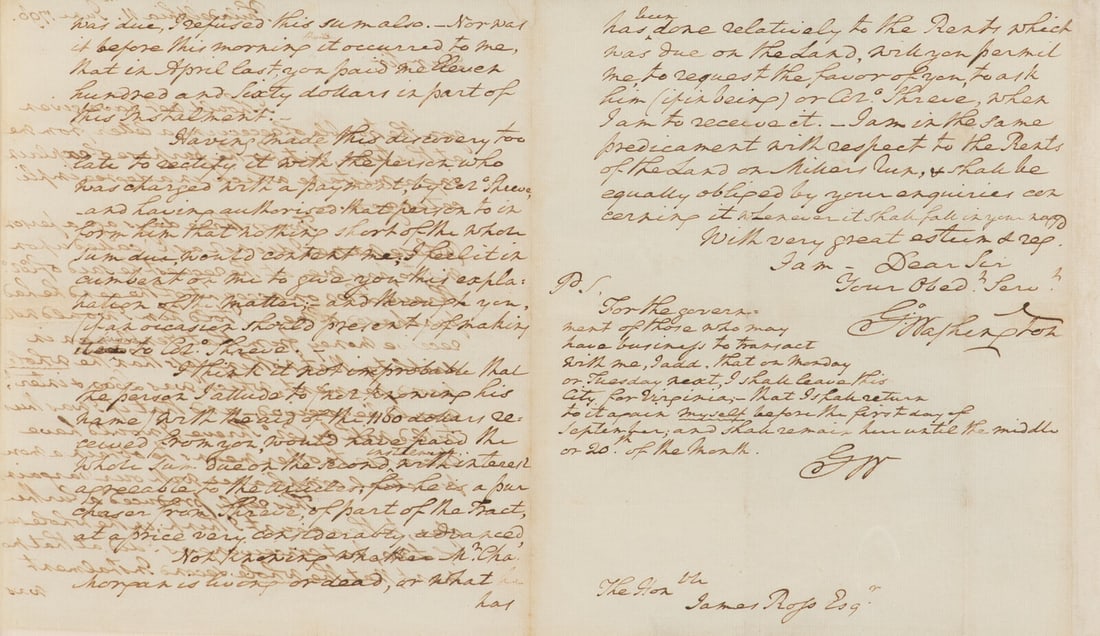 was due, I refused this sum also. — Nor was
it before this morning it occurred to me,
that in April last, you paid me Eleven
hundred and Sixty dollars in part of
this Instalment. —
Having made this discovery too
late to rectify it with the person who
was charged with a payment, by Colo. Shreve,
and having authorised that person to in
form him that nothing short of the whole
sum due, would content me, I feel it in
cumbent on me to give you this expla-
nation of the matter. And through you,
(if an occasion should present) of making
it to Colo. Shreve. —
I think it not improbable that
the person I allude to (not knowing his
name) with the aid of the 1160 dollars re-
ceived from you, would have paid the
whole Sum due on the second instalment, with interest
agreeable to the ; for he is a pur
chaser from Shreve, of part of the Tract,
at a price very considerably advanced
Not knowing whether Mr. Chas.
Morgan is living or dead, or what he
has
has been done relatively to the Rents which
was due on the Land, will you permit
me to request the favor of you, to ask
him (if in being) or Colo. Shreve, when
I am to receive it. — I am in the same
predicament with respect to the Rents
of the Land on Millers run, & shall be
equally obliged by your enquiries con
cerning it whenever it shall fall in your way
With very great esteem & regd.
I am — Dear Sir
Your Obedt. Servt.
Go. Washington
P.S.
For the govern-
ment of those who may
have business to transact
with me, I add, that on Monday
or Tuesday next, I shall leave this
City for Virginia; — that I shall return
to it again myself before the first day of
September; and shall remain here until the middle
or 20th. of the Month.
GW
The Honble.
James Ross Esqr.